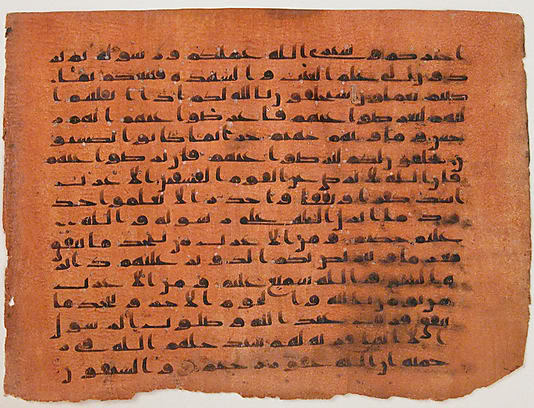 اخباركم وسيرى الله عملكم ورسوله ثم تر
دون الى علم الغيب والشهدة فينبئكم بما
كنتم تعملون سيحلفون بالله لكم اذا انقلبتم
اليهم لتعرضوا عنهم فاعرضوا عنهم انهم ر
جس وماويهم جهنم جزا بما كانوا يكسبو
ن يحلفون لكم لترضوا عنهم فان ترضوا عنهم
فان الله لا يرضى عن القوم الفسقين الاعراب
اشد كفرا ونفاقا واجدر الا يعلموا حد
ود ما انزل الله على رسوله والله
عليم حكيم ومن الاعراب من يتخذ ما ينفق
مغرما ويتربص بكم الدوائر عليهم دائرة
السوء والله سميع عليم ومن الاعراب
من يؤمن بالله واليوم الاخر ويتخذ ما
ينفق قربت عند الله وصلوت الرسول
الا انها قربة لهم سيدخلهم الله في ر
حمته ان الله غفور رحيم والسبقون